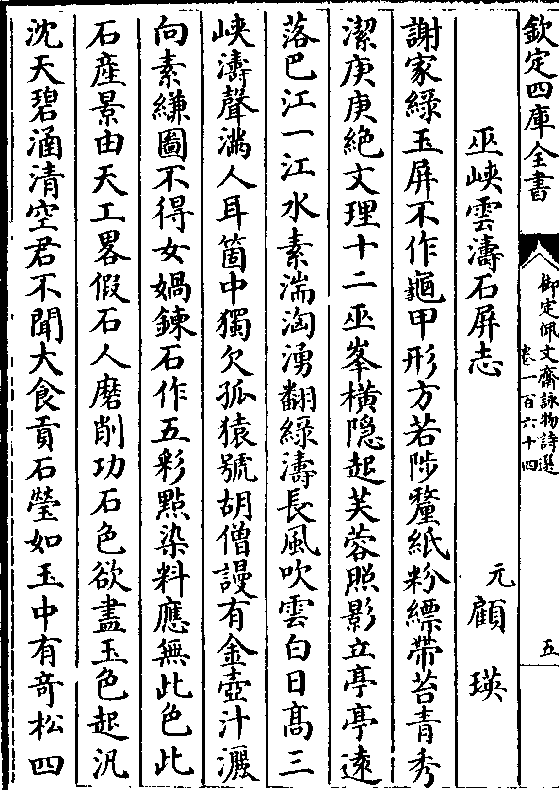 欽定四庫全書
御定佩文齋詠物詩選
卷一百六十四
五
巫峽雲濤石屏志
元顧瑛
謝家綠玉屏不作龜甲形方若陟釐紙粉縹帶苔青秀
潔庚庚絶文理十二巫峯橫隠起芙蓉照影立亭亭逺
落巴江一江水素湍洶湧翻綠濤長風吹雲白日髙三
峽濤聲滿人耳箇中獨欠孤猿號胡僧謾有金壺汁灑
向素縑圖不得女媧鍊石作五彩㸃染料應無此色此
石産景由天工畧假石人磨削功石色欲盡玉色起汎
沈天碧涵清空君不聞大食貢石瑩如玉中有竒松四